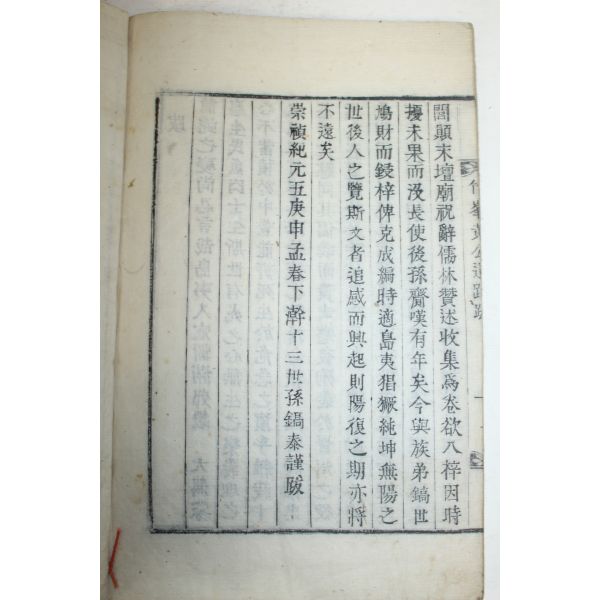 閭顛末壇廟祝辭儒林贊述收集爲卷欲入梓因時
擾未果而沒長使後孫齎嘆有年矣今與族弟鎬世
鳩財而鋟梓俾克成編時適島夷猖獗純坤無陽之
世後人之覽斯文者追感而興起則陽復之期亦將
不遠矣
崇禎紀元五庚申孟春下澣十三世孫鎬泰謹跋